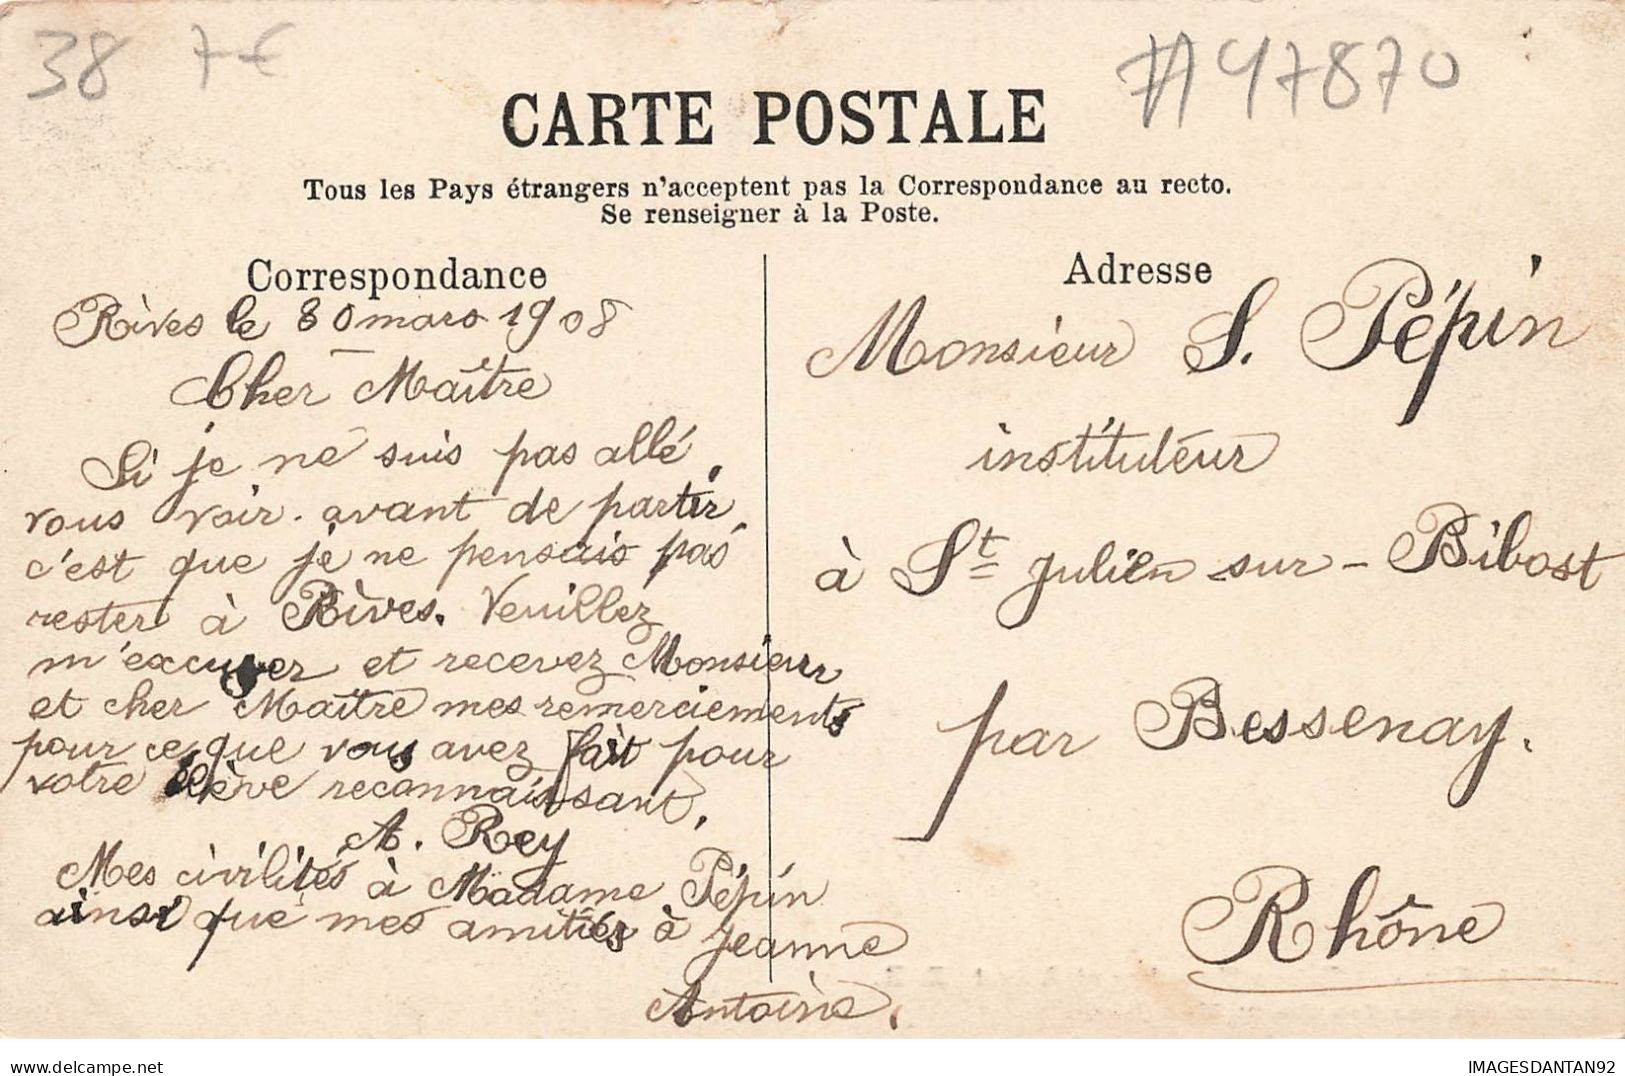 38 7€
#A47870
CARTE POSTALE
Tous les Pays étrangers n'acceptent pas la Correspondance au recto.
Se renseigner à la Poste.
Correspondance
Rives le 30 mars 1908
Cher Maître
Si je ne suis pas allé
vous voir avant de partir,
c'est que je ne pensais pas
rester à Rives. Veuillez
m'excuser et recevez Monsieur
et cher Maître mes remerciements
pour ce que vous avez fait pour
votre élève reconnaissant,
A. Rey
Mes civilités à Madame Pépin
ainsi que mes amitiés à Jeanne
Antoine.
Adresse
Monsieur S. Pépin
instituteur
à St Julien sur-Bibost
par Bessenay.
Rhône
IMAGESDANTAN92